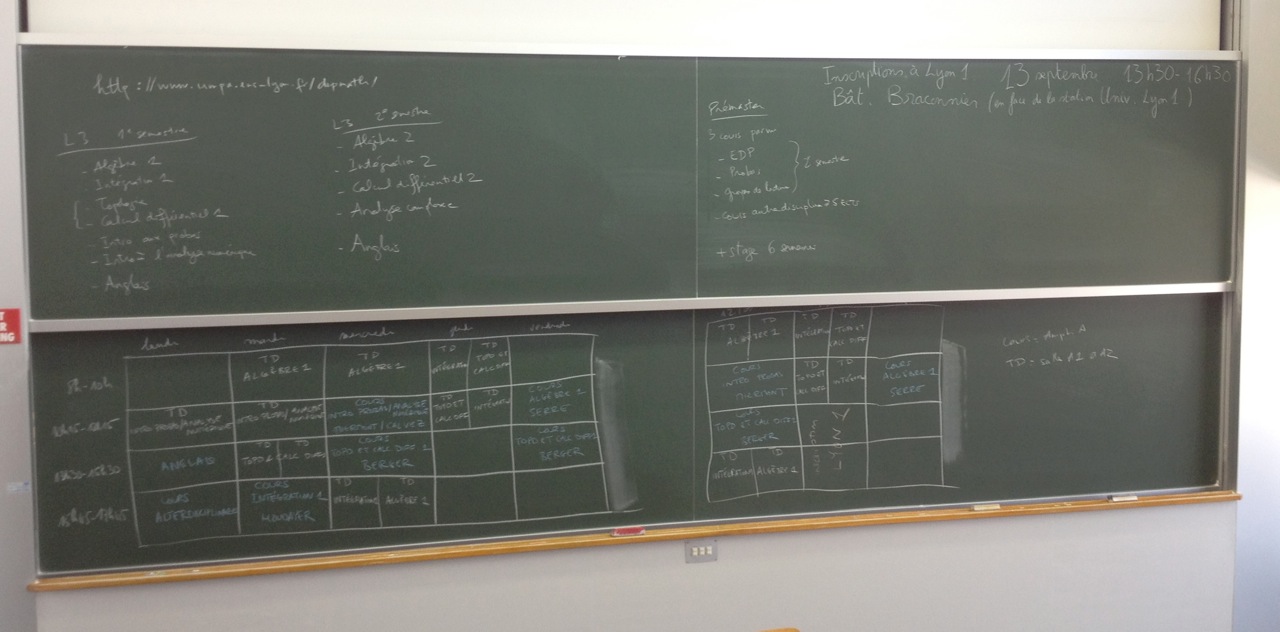 http://www.umpa.ens-lyon.fr/depmath/
L3 1e semestre
- Algèbre 1
- Intégration 1
- Topologie
- Calcul différentiel 1
- Intro aux probas
- Intro à l'analyse numérique
- Anglais
L3 2e semestre
- Algèbre 2
- Intégration 2
- Calcul différentiel 2
- Analyse complexe
- Anglais
Inscriptions à Lyon 1 13 septembre 13h30-16h30
Bât. Braconnier (en face de la station Univ. Lyon 1)
Prémaster
3 cours parmi
- EDP
- Probas
2 semestre
- Cours autre discipline 5 ECTS
+ stage 6 semaines
lundi mardi mercredi jeudi vendredi
8h-10h
TD ALGÈBRE 1
TD ALGÈBRE 1
TD INTÉGRATION
TD TOPO ET CALC DIFF
10h15-12h15
TD INTRO PROBAS/ANALYSE NUMÉRIQUE
TD INTRO PROBAS/ANALYSE NUMÉRIQUE
COURS INTRO PROBAS/ANALYSE NUMÉRIQUE
CALVEZ
TD TOPO ET CALC DIFF
TD INTÉGRATION
COURS ALGÈBRE 1 SERRE
13h30-15h30
ANGLAIS
TD TD
TOPO & CALC DIFF
COURS TOPO ET CALC DIFF 1 BERGER
COURS TOPO ET CALC DIFF 1 BERGER
15h45-17h45
COURS
COURS INTÉGRATION 1
TD INTÉGRATION
TD ALGÈBRE 1
TD TD
ALGÈBRE 1
TD INTÉGRATION
TD TOPO ET CALC DIFF
COURS INTRO PROBAS
TD TOPO ET CALC DIFF
TD INTÉGRATION
COURS ALGÈBRE 1 SERRE
COURS TOPO ET CALC DIFF 1 BERGER
TD INTÉGRATION
TD ALGÈBRE 1
Cours = Amphi A
TD =